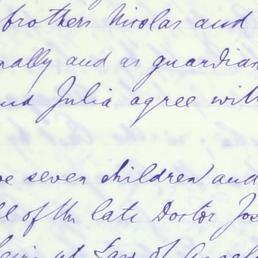 brothers Nicolas and
nally and as guardian
and Julia agree with
seven children and
ll of the late Doctor Jos
heirs at Law of Angel